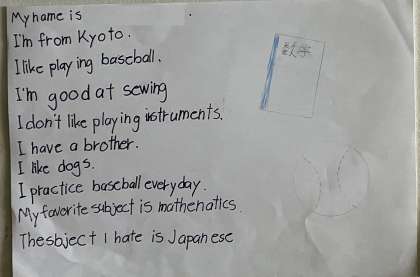 My name is .
I'm from Kyoto.
I like playing baseball.
I'm good at sewing
I don't like playing instruments.
I have a brother.
I like dogs.
I practice baseball everyday.
My favorite subject is mathenatics.
The sbject I hate is Japanese
数学